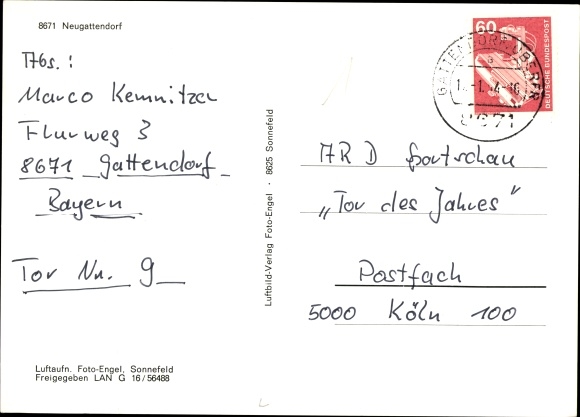 8671 Neugattendorf
Abs.:
Marco Kemnitzer
Flurweg 3
8671 Gattendorf
Bayern
Tor Nr. 9
Luftaufn. Foto-Engel, Sonnefeld
Freigegeben LAN G 16/56488
Luftbild-Verlag Foto-Engel · 8625 Sonnefeld
60
DEUTSCHE BUNDESPOST
8671
ARD Sportschau
„Tor des Jahres“
Postfach
5000 Köln 100